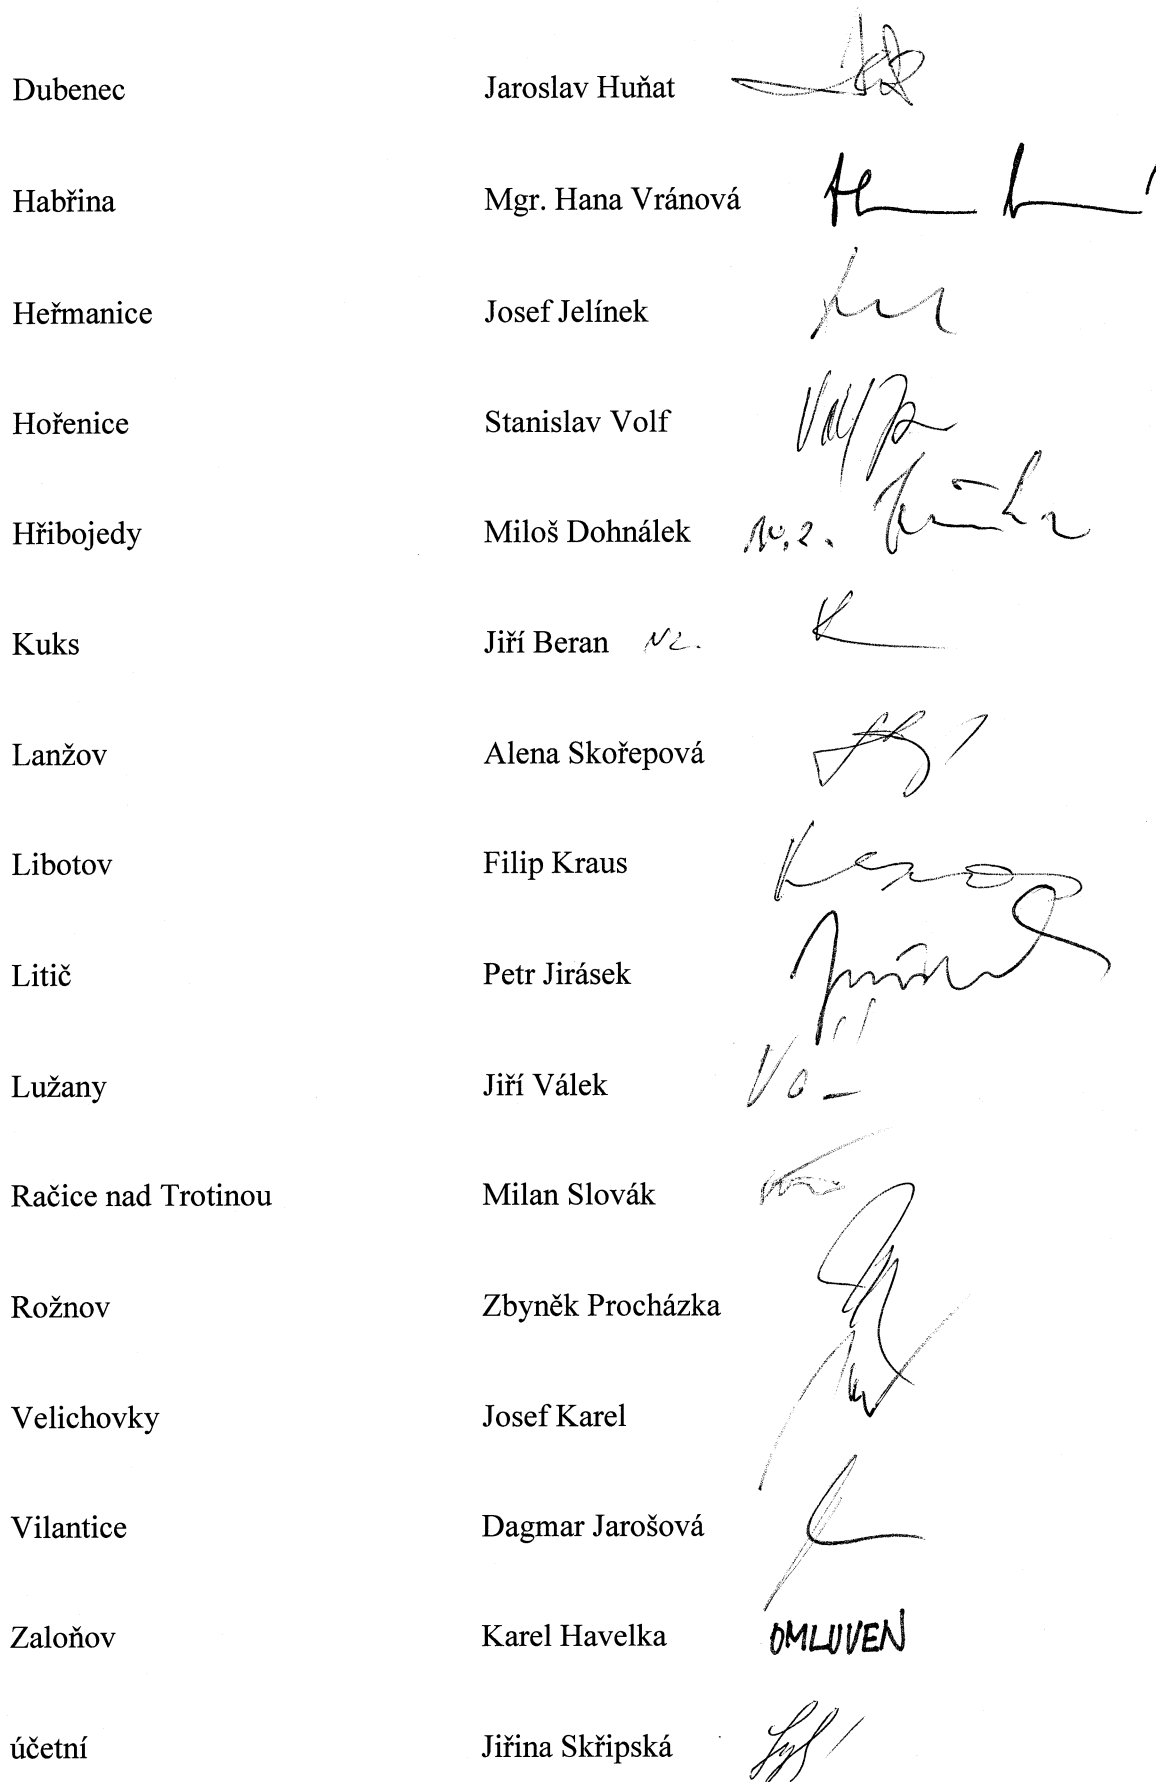 Dubenec Jaroslav Huňat
Habřina Mgr. Hana Vránová
Heřmanice Josef Jelínek
Hořenice Stanislav Volf
Hřibojedy Miloš Dohnálek
Kuks Jiří Beran
Lanžov Alena Skořepová
Libotov Filip Kraus
Litič Petr Jirásek
Lužany Jiří Válek
Račice nad Trotinou Milan Slovák
Rožnov Zbyněk Procházka
Velichovky Josef Karel
Vilantice Dagmar Jarošová
Zaloňov Karel Havelka OMLUVEN
účetní Jiřina Skřipská